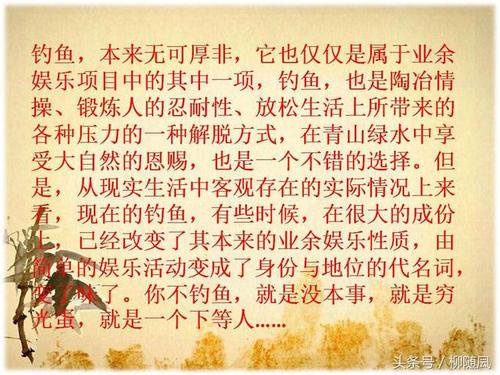 钓鱼，本来无可厚非，它也仅仅是属于业余
娱乐项目中的其中一项，钓鱼，也是陶冶情
操、锻炼人的忍耐性、放松生活上所带来的
各种压力的一种解脱方式，在青山绿水中享
受大自然的恩赐，也是一个不错的选择。但
是，从现实生活中客观存在的实际情况上来
看，现在的钓鱼，有些时候，在很大的成份
上，已经改变了其本来的业余娱乐性质，由
简单的娱乐活动变成了身份与地位的代名词，
变了味了。你不钓鱼，就是没本事，就是穷
光蛋，就是一个下等人……
头条号／柳随风